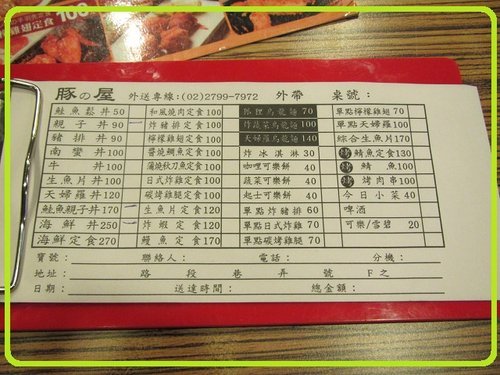 100
雞翅定食
豚の屋 外送專線:(02)2799-7972 外帶 桌號:
鮭魚鬆丼 50 和風燒肉定食100 狐狸烏龍麵 70 單點檸檬雞翅 70
親子丼 90 炸豬排定食100 炸蔬菜烏龍麵100 單點天婦羅100
豬排丼 90 檸檬雞翅定食100 天婦羅烏龍麵 140 綜合生魚片170
南蠻丼100 醬燒鯛魚定食100 炸冰淇淋 30 烤鯖魚定食130
牛丼100 蒲燒秋刀魚定食100 咖哩可樂餅 40 烤鯖魚100
生魚片丼100 日式炸雞定食100 蔬菜可樂餅 40 烤烤肉串100
天婦羅丼120 碳烤雞腿定食100 起士可樂餅 40 今日小菜 40
鮭魚親子丼170 生魚片定食120 單點炸豬排 60 啤酒
海鮮丼250 炸蝦定食120 單點日式炸雞 70 可樂/雪碧 20
海鮮定食270 鰻魚定食170 單點碳烤雞腿 70
寶號: 聯絡人: 電話: 分機:
地址: 路 段 巷 弄 號 F之
日期: 送達時間: 總金額: